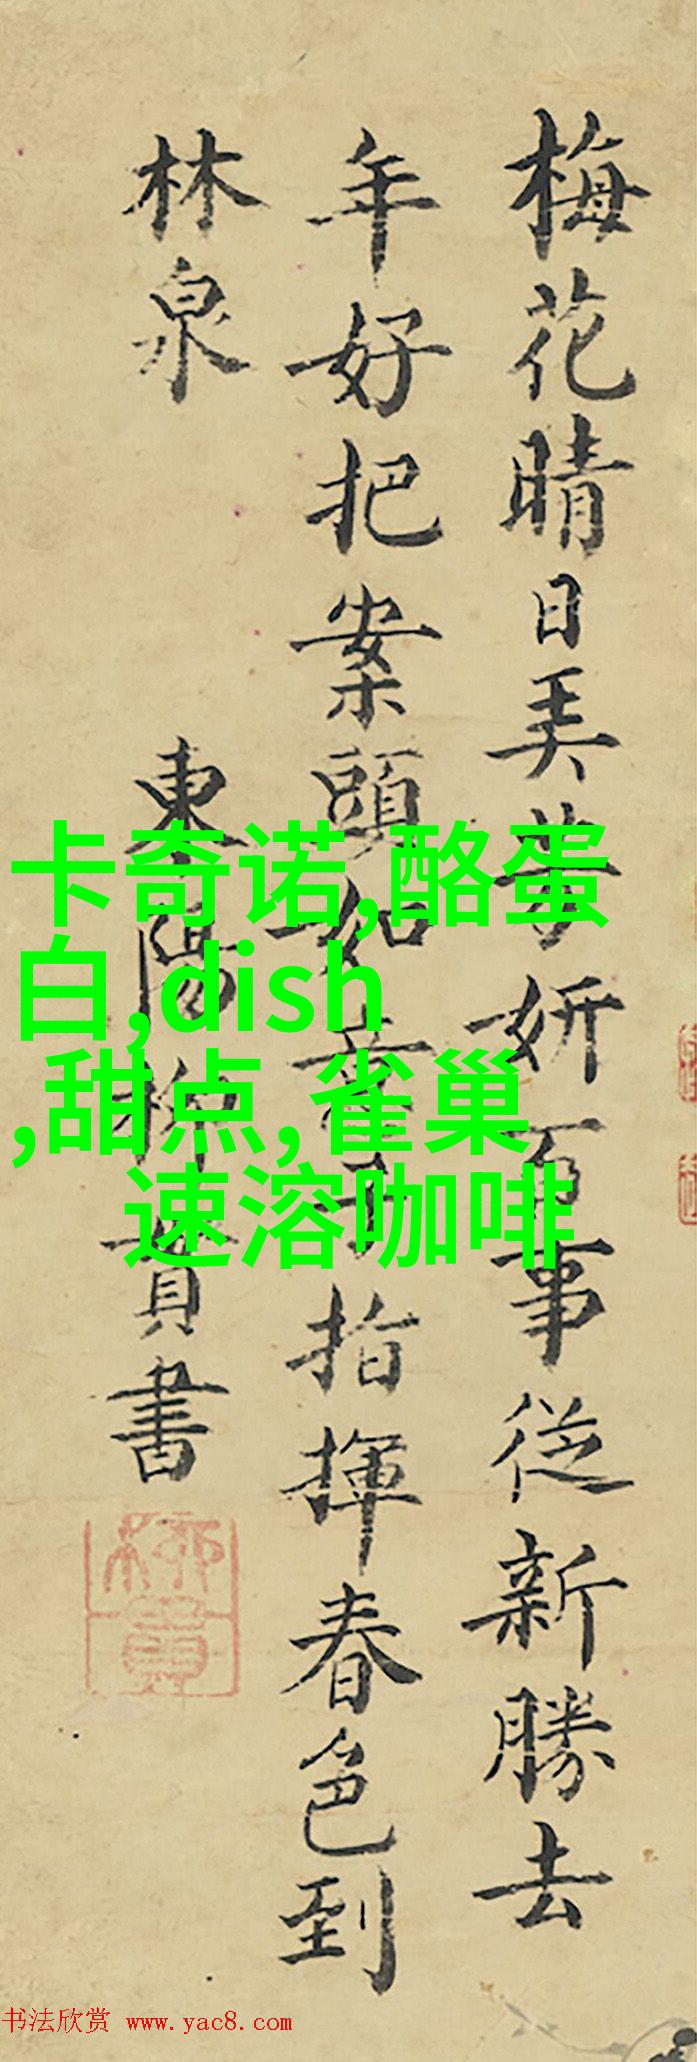 梅花晴日美黄妍百事従新勝去
年好把案頭如意手指揮春色到
林泉
東陽柳貫書
柳貫
卡奇诺,酪蛋
白,dish
,甜点,雀巢
速溶咖啡
书法欣赏 www.yac8.com